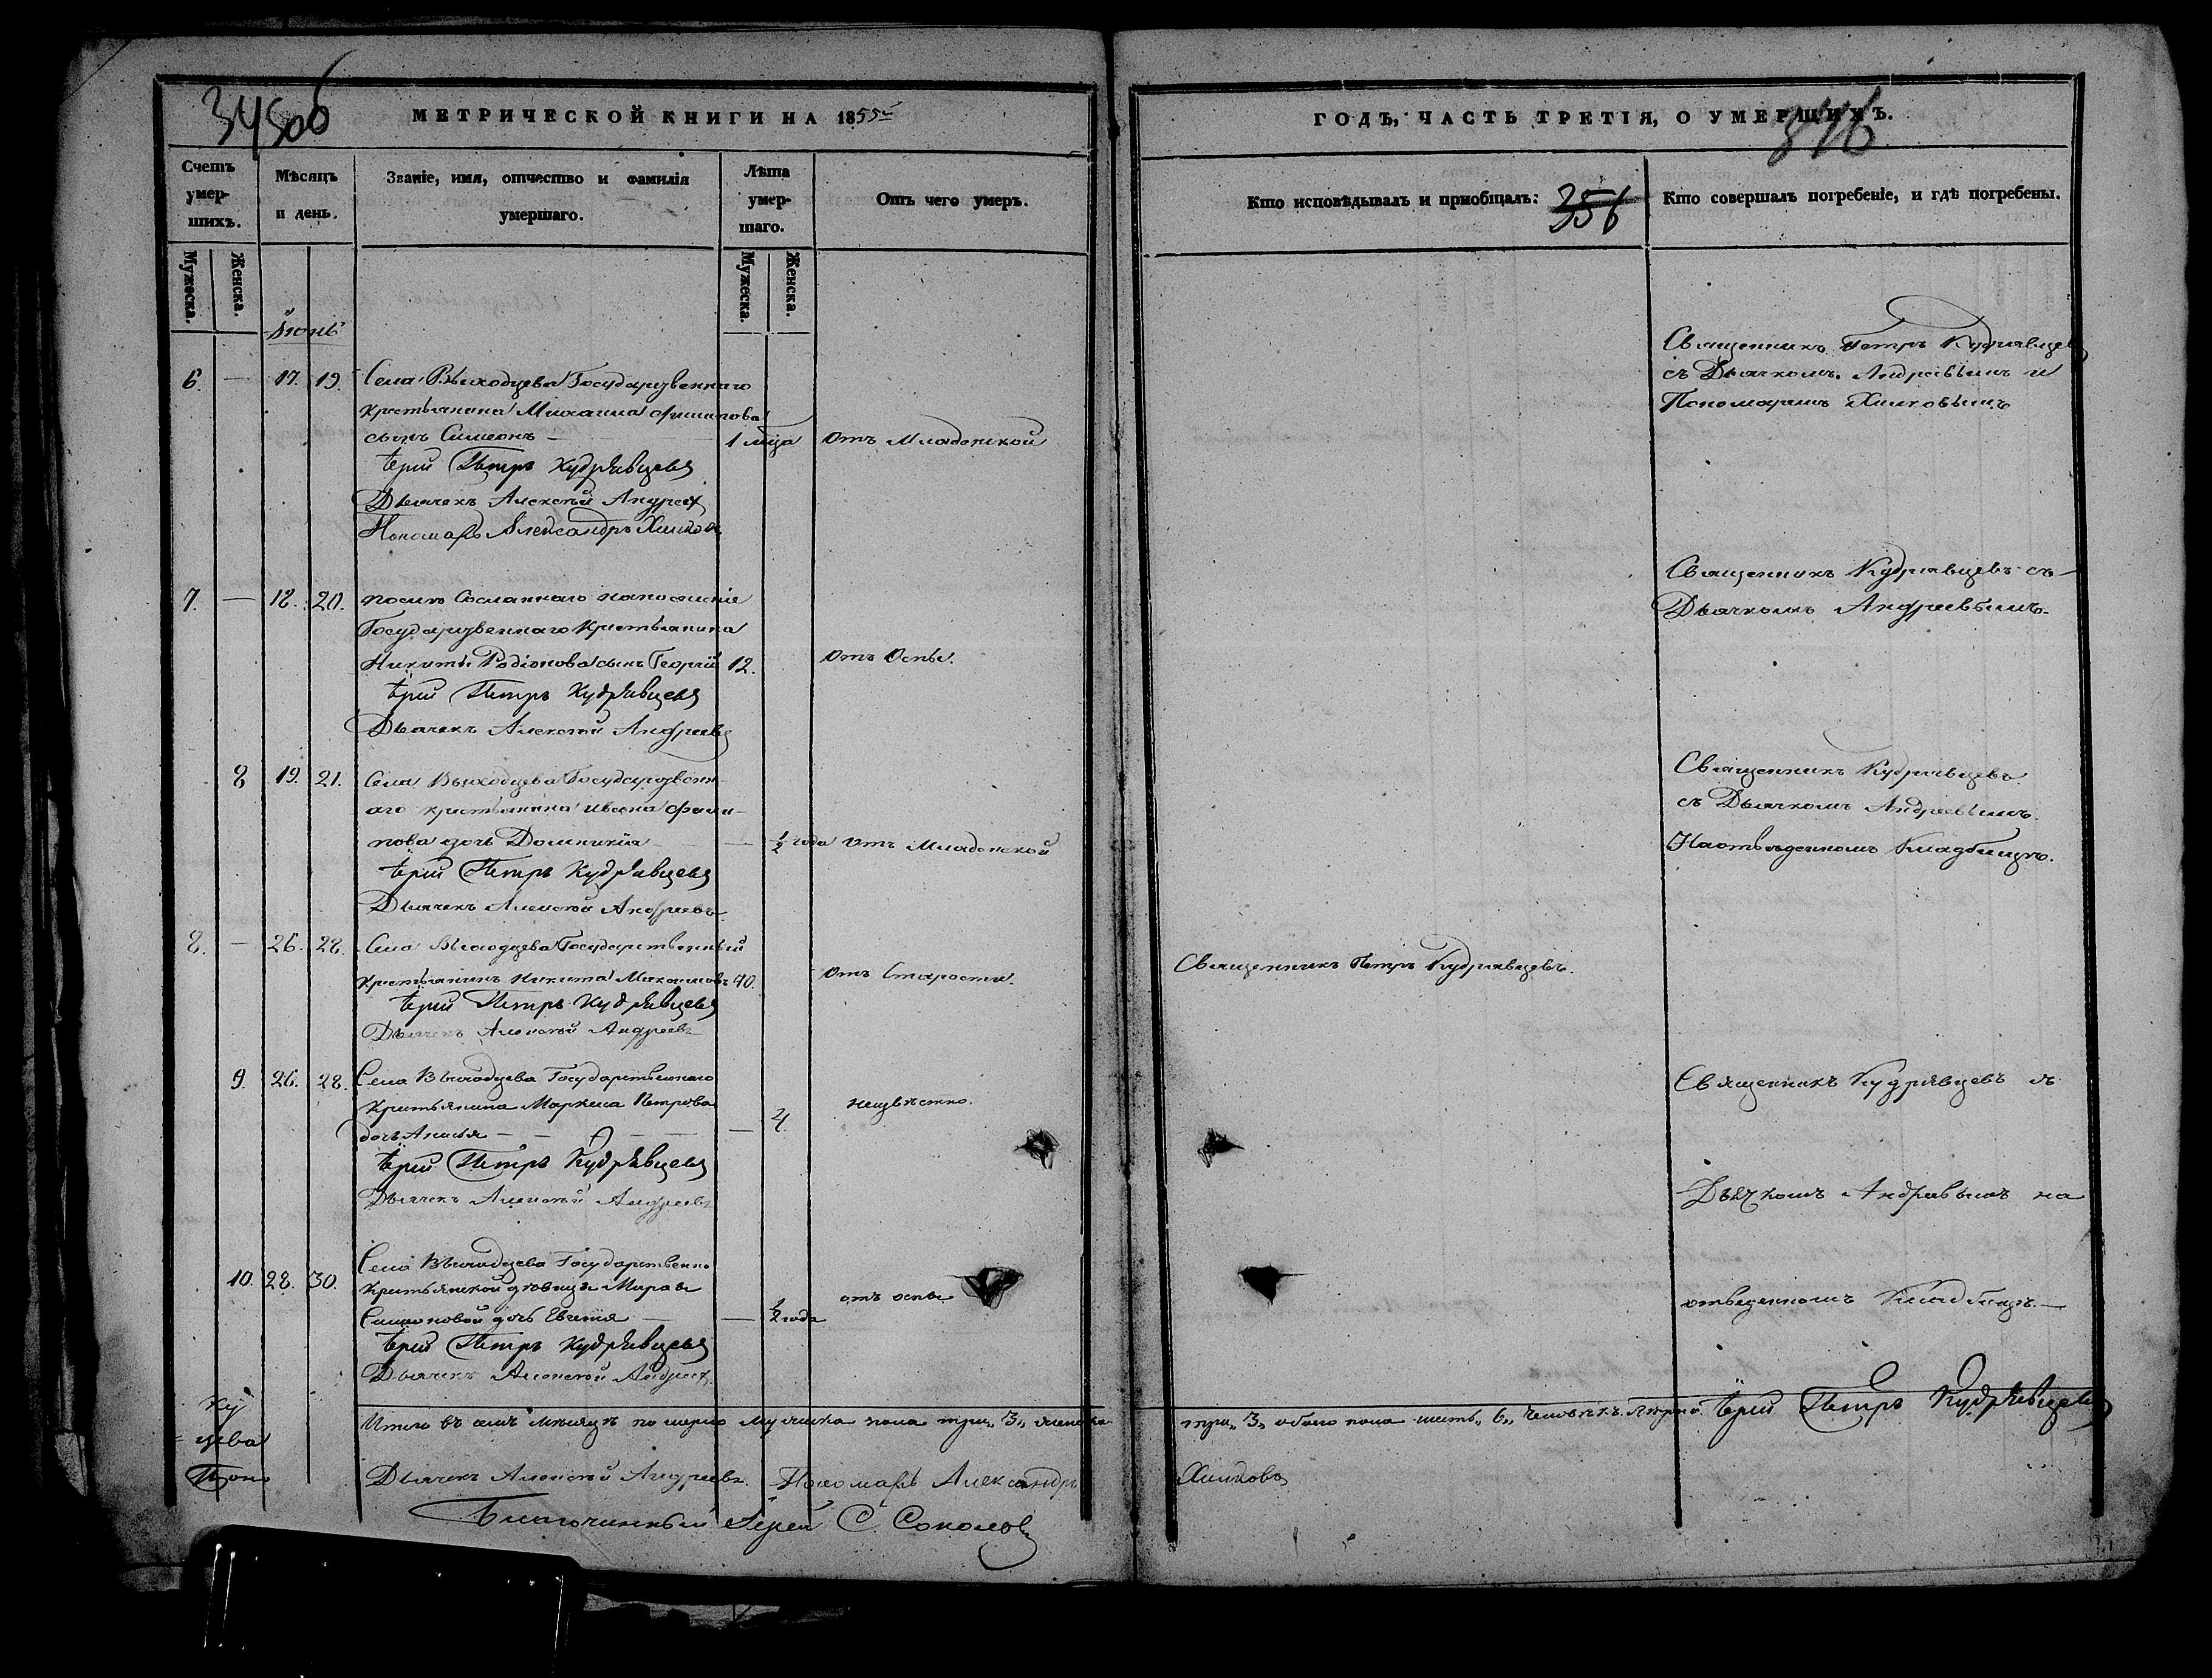 345об
МЕТРИЧЕСКОЙ КНИГИ НА 1855й
Счетъ умерших.
Мѣсяцъ и день.
Званіе, имя, отчество и фамилія умершаго.
Лѣта умершаго.
Отъ чего умеръ.
Мужеска.
Женска.
Мужеска.
Женска.
Іюнь
6. — 17. 19. Села Выходцева Государзвеннаго
крестьянина Михаила Филипова
сынъ Симеонъ — 1 мца Отъ Младенской
Іерей Петръ Кудрявцевъ
Дьячекъ Алексѣй Андреев
Пономарь Александръ Хилков
7. — 18. 20. после Сосланнаго на поселеніе
Государзвеннаго Крестьянина
Никиты Родіонова сынъ Георгій 12. Отъ Оспы.
Іерей Петръ Кудрявцевъ
Дьячекъ Алексѣй Андреевъ
8 19. 21. Села Выходцева Государзвенн-
аго крестьянина Ивана Фили-
пова дочь Домникія — 1/2 года Отъ Младенской
Іерей Петръ Кудрявцевъ
Дьячекъ Алексѣй Андреевъ
8. — 26. 28. Села Выходцева Государственный
крестьянинъ Никита Михаиловъ 90. Отъ Старости.
Іерей Петръ Кудрявцевъ
Дьячекъ Алексѣй Андреевъ
9. 26. 28. Села Выходцева Государственнаго
Крестьянина Маркела Петрова — 4. неизвѣстно.
дочь Анисья — — —
Іерей Петръ Кудрявцевъ
Дьячекъ Алексѣй Андреевъ
10. 28. 30. Села Выходцева Государственно
Крестьянской дѣвицы Марѳы
Симоновой дочь Евгенія — 1/2 года отъ оспы
Іерей Петръ Кудрявцевъ
Дьячекъ Алексѣй Андреев
Итого въ семъ мѣсяцѣ померло мужеска пола три „3„ женска
Дьячекъ Алексѣй Андреевъ. Пономарь Александръ
Благочинный Іерей С. Соколовъ
цева
346
ГОДЪ, ЧАСТЬ ТРЕТІЯ, О УМЕРШИХЪ.
Кто исповѣдывалъ и пріобщалъ: 356
Кто совершалъ погребеніе, и гдѣ погребены.
Священникъ Петръ Кудрявцев
съ Дьячкомъ Андреевымъ и
Пономаремъ Хилковымъ
Священникъ Кудрявцевъ съ
Дьячкомъ Андреевымъ.
Священникъ Кудрявцевъ
съ Дьячкомъ Андреевымъ.
На отведенномъ Кладбищѣ.
Священникъ Петръ Кудрявцевъ.
Священникъ Кудрявцевъ съ
Дьячкомъ Андреевымъ на
отведенномъ Кладбищѣ. —
три „3„ обоего пола шесть „6„ человѣкъ. Іерей Петръ Кудрявцевъ
Хилковъ